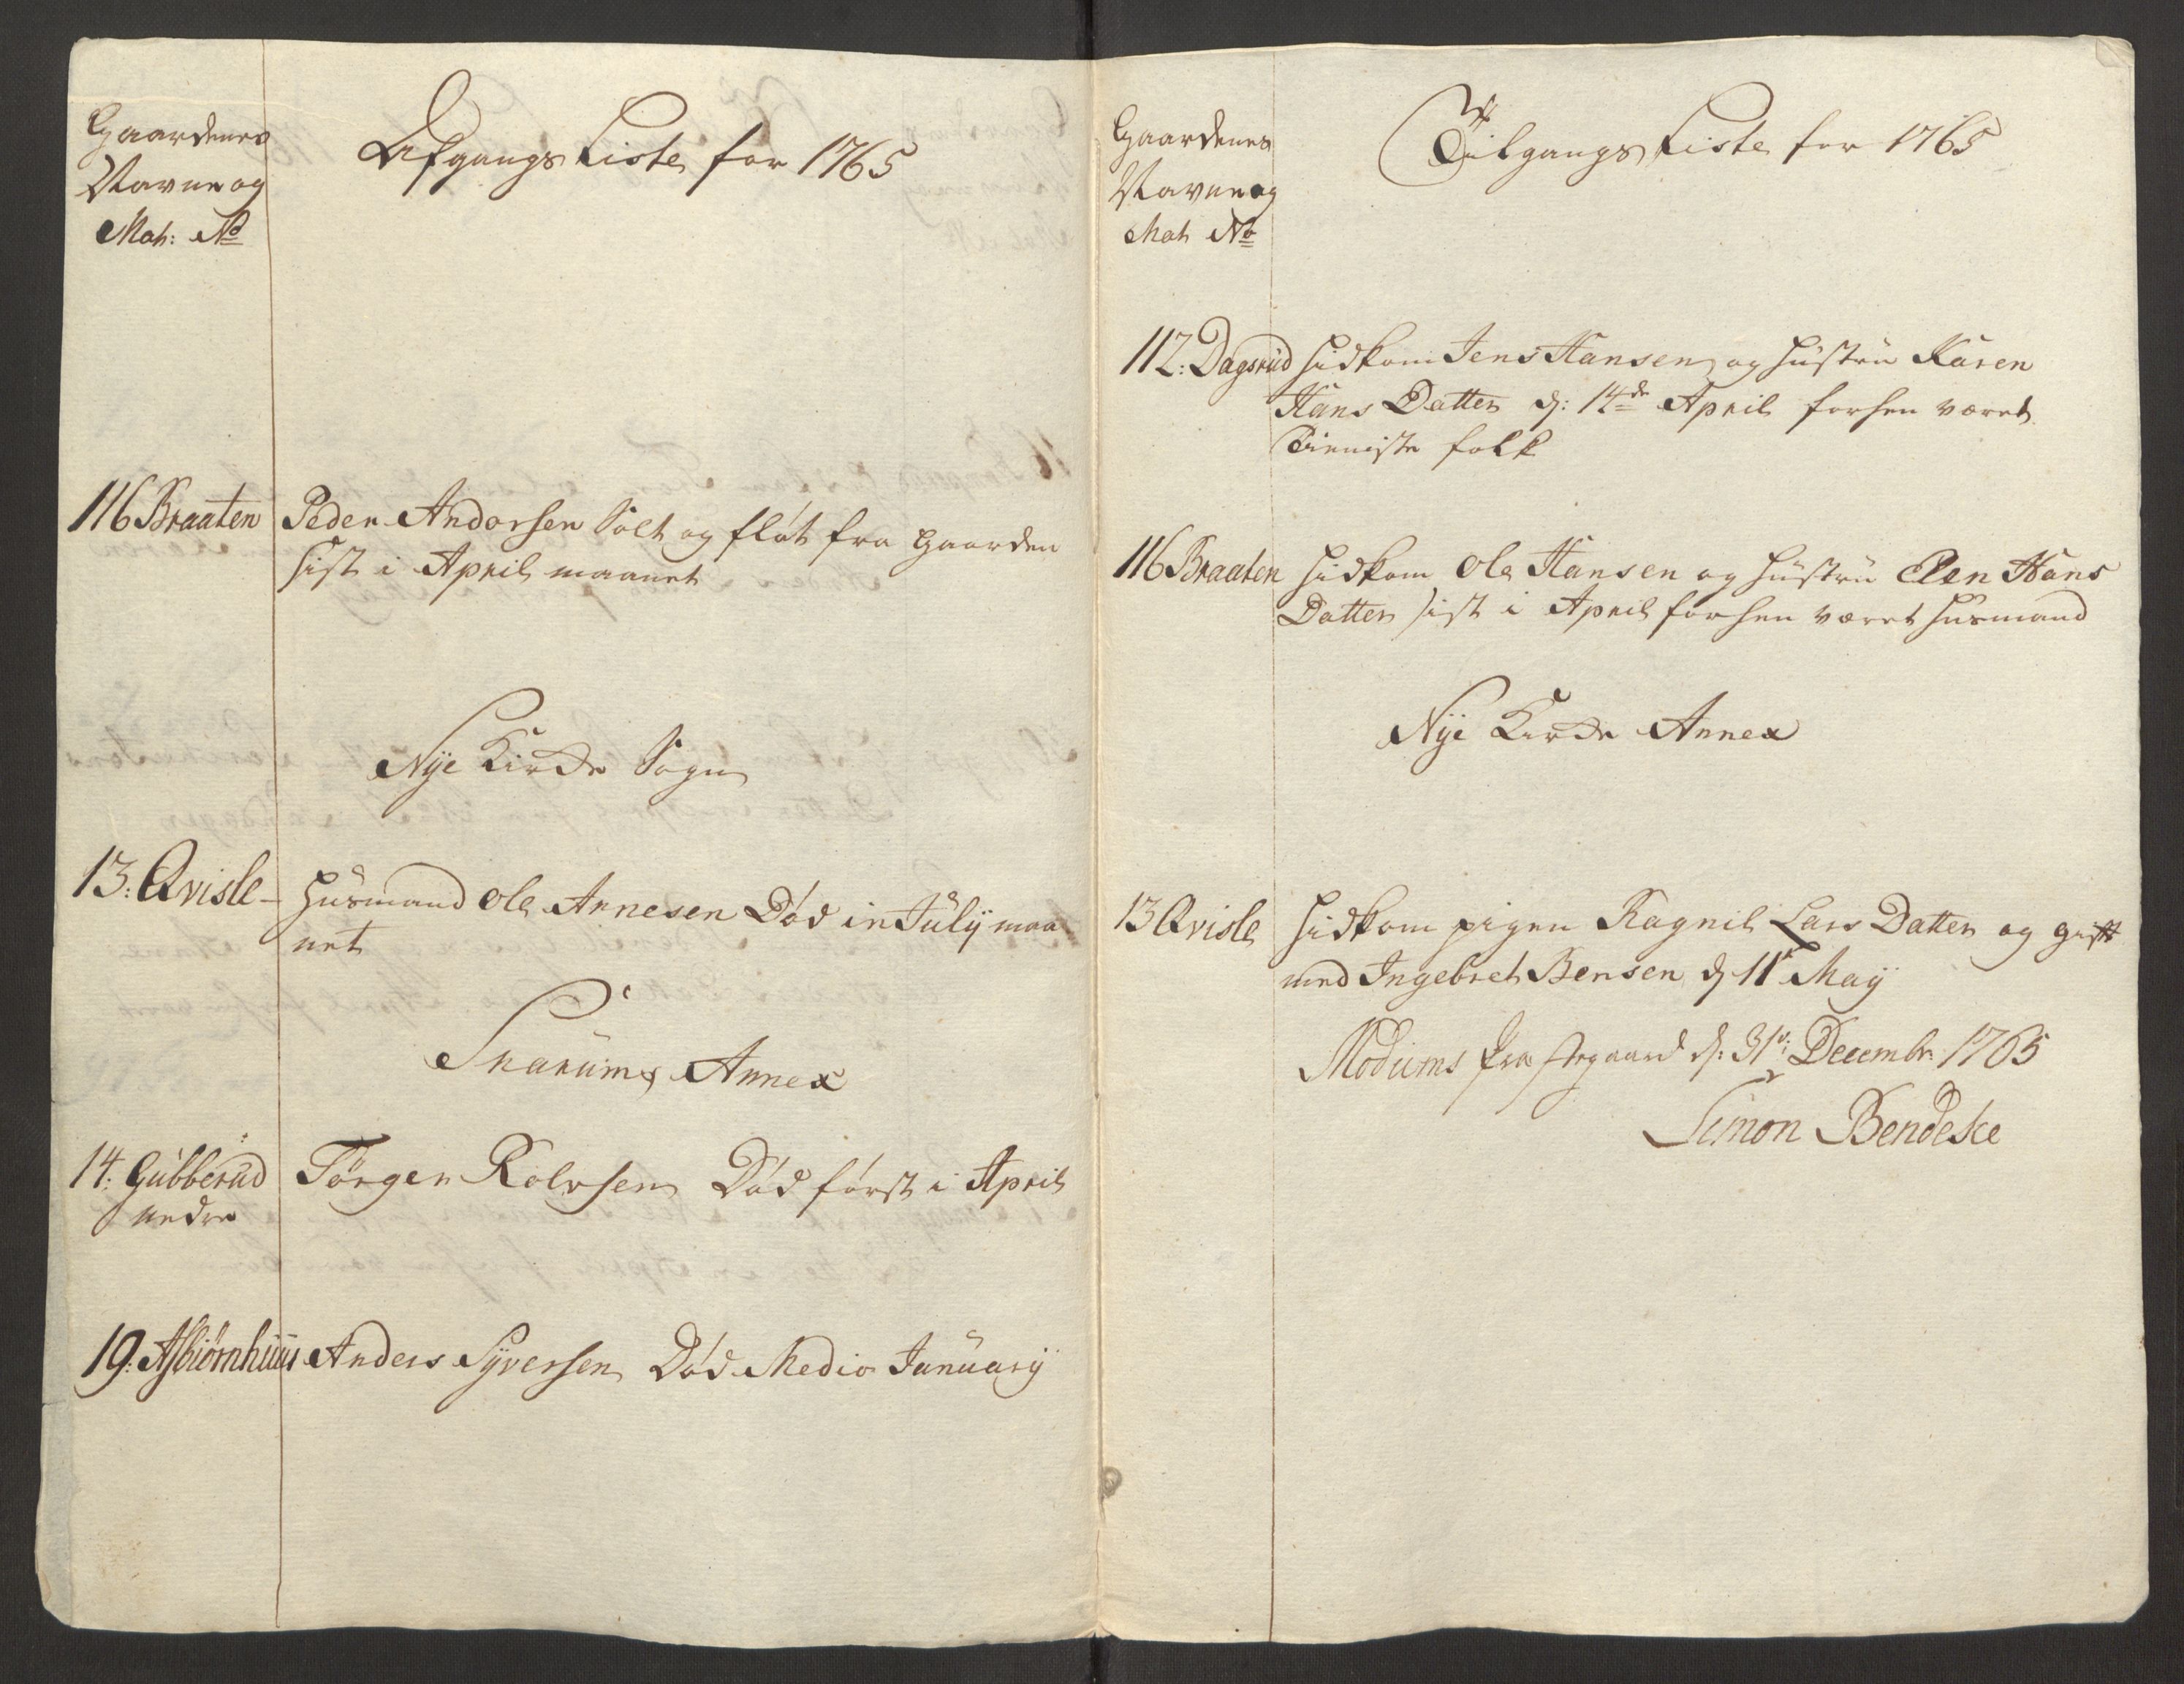 Gaardenes
Navne og
Mat: No
Afgangs Liste for 1765
116 Braaten Peder Andersen Solt og fløt fra Gaarden
sist i April maanet
Nye Kirche Sogn
13: Qvisle - Huusmand Ole Arnesen Død in Julÿ maa
net
Snarums Annex
14: Gubberud Jørgen Rolvsen Død først i April
nedre
19: Asbiørnhuus Anders Syversen Død Medio Januarÿ
Gaardenes
Navne og
Mat No
Tilgangs Liste for 1765
112: Dagsrud Hidkom Jens Hansen og Hustru Karen
Hans Datter d: 14de April forhen været
Tieniste folk
116 Braaten Hidkom Ole Hansen og Hustru Elen Hans
Datter sist i April forhen været Huusmand
Nÿe Kirche Annex
13 Qvisle Hidkom pigen Ragnil Lars Datter og gift
med Ingebret Bensen d 11te Maÿ
Modums Præstegaard d: 31te Decembr 1765
Simon Bendeke